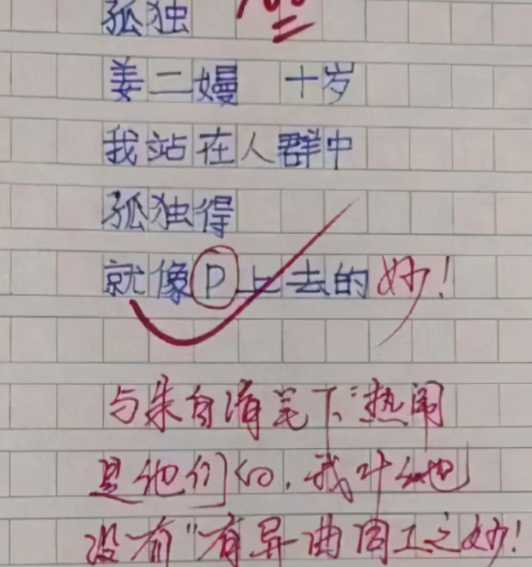 孤独
姜二嫚 十岁
我站在人群中
孤独得
就像P上去的 妙!
与朱自清笔下"热闹
是他们的,我什么也
没有"有异曲同工之妙!